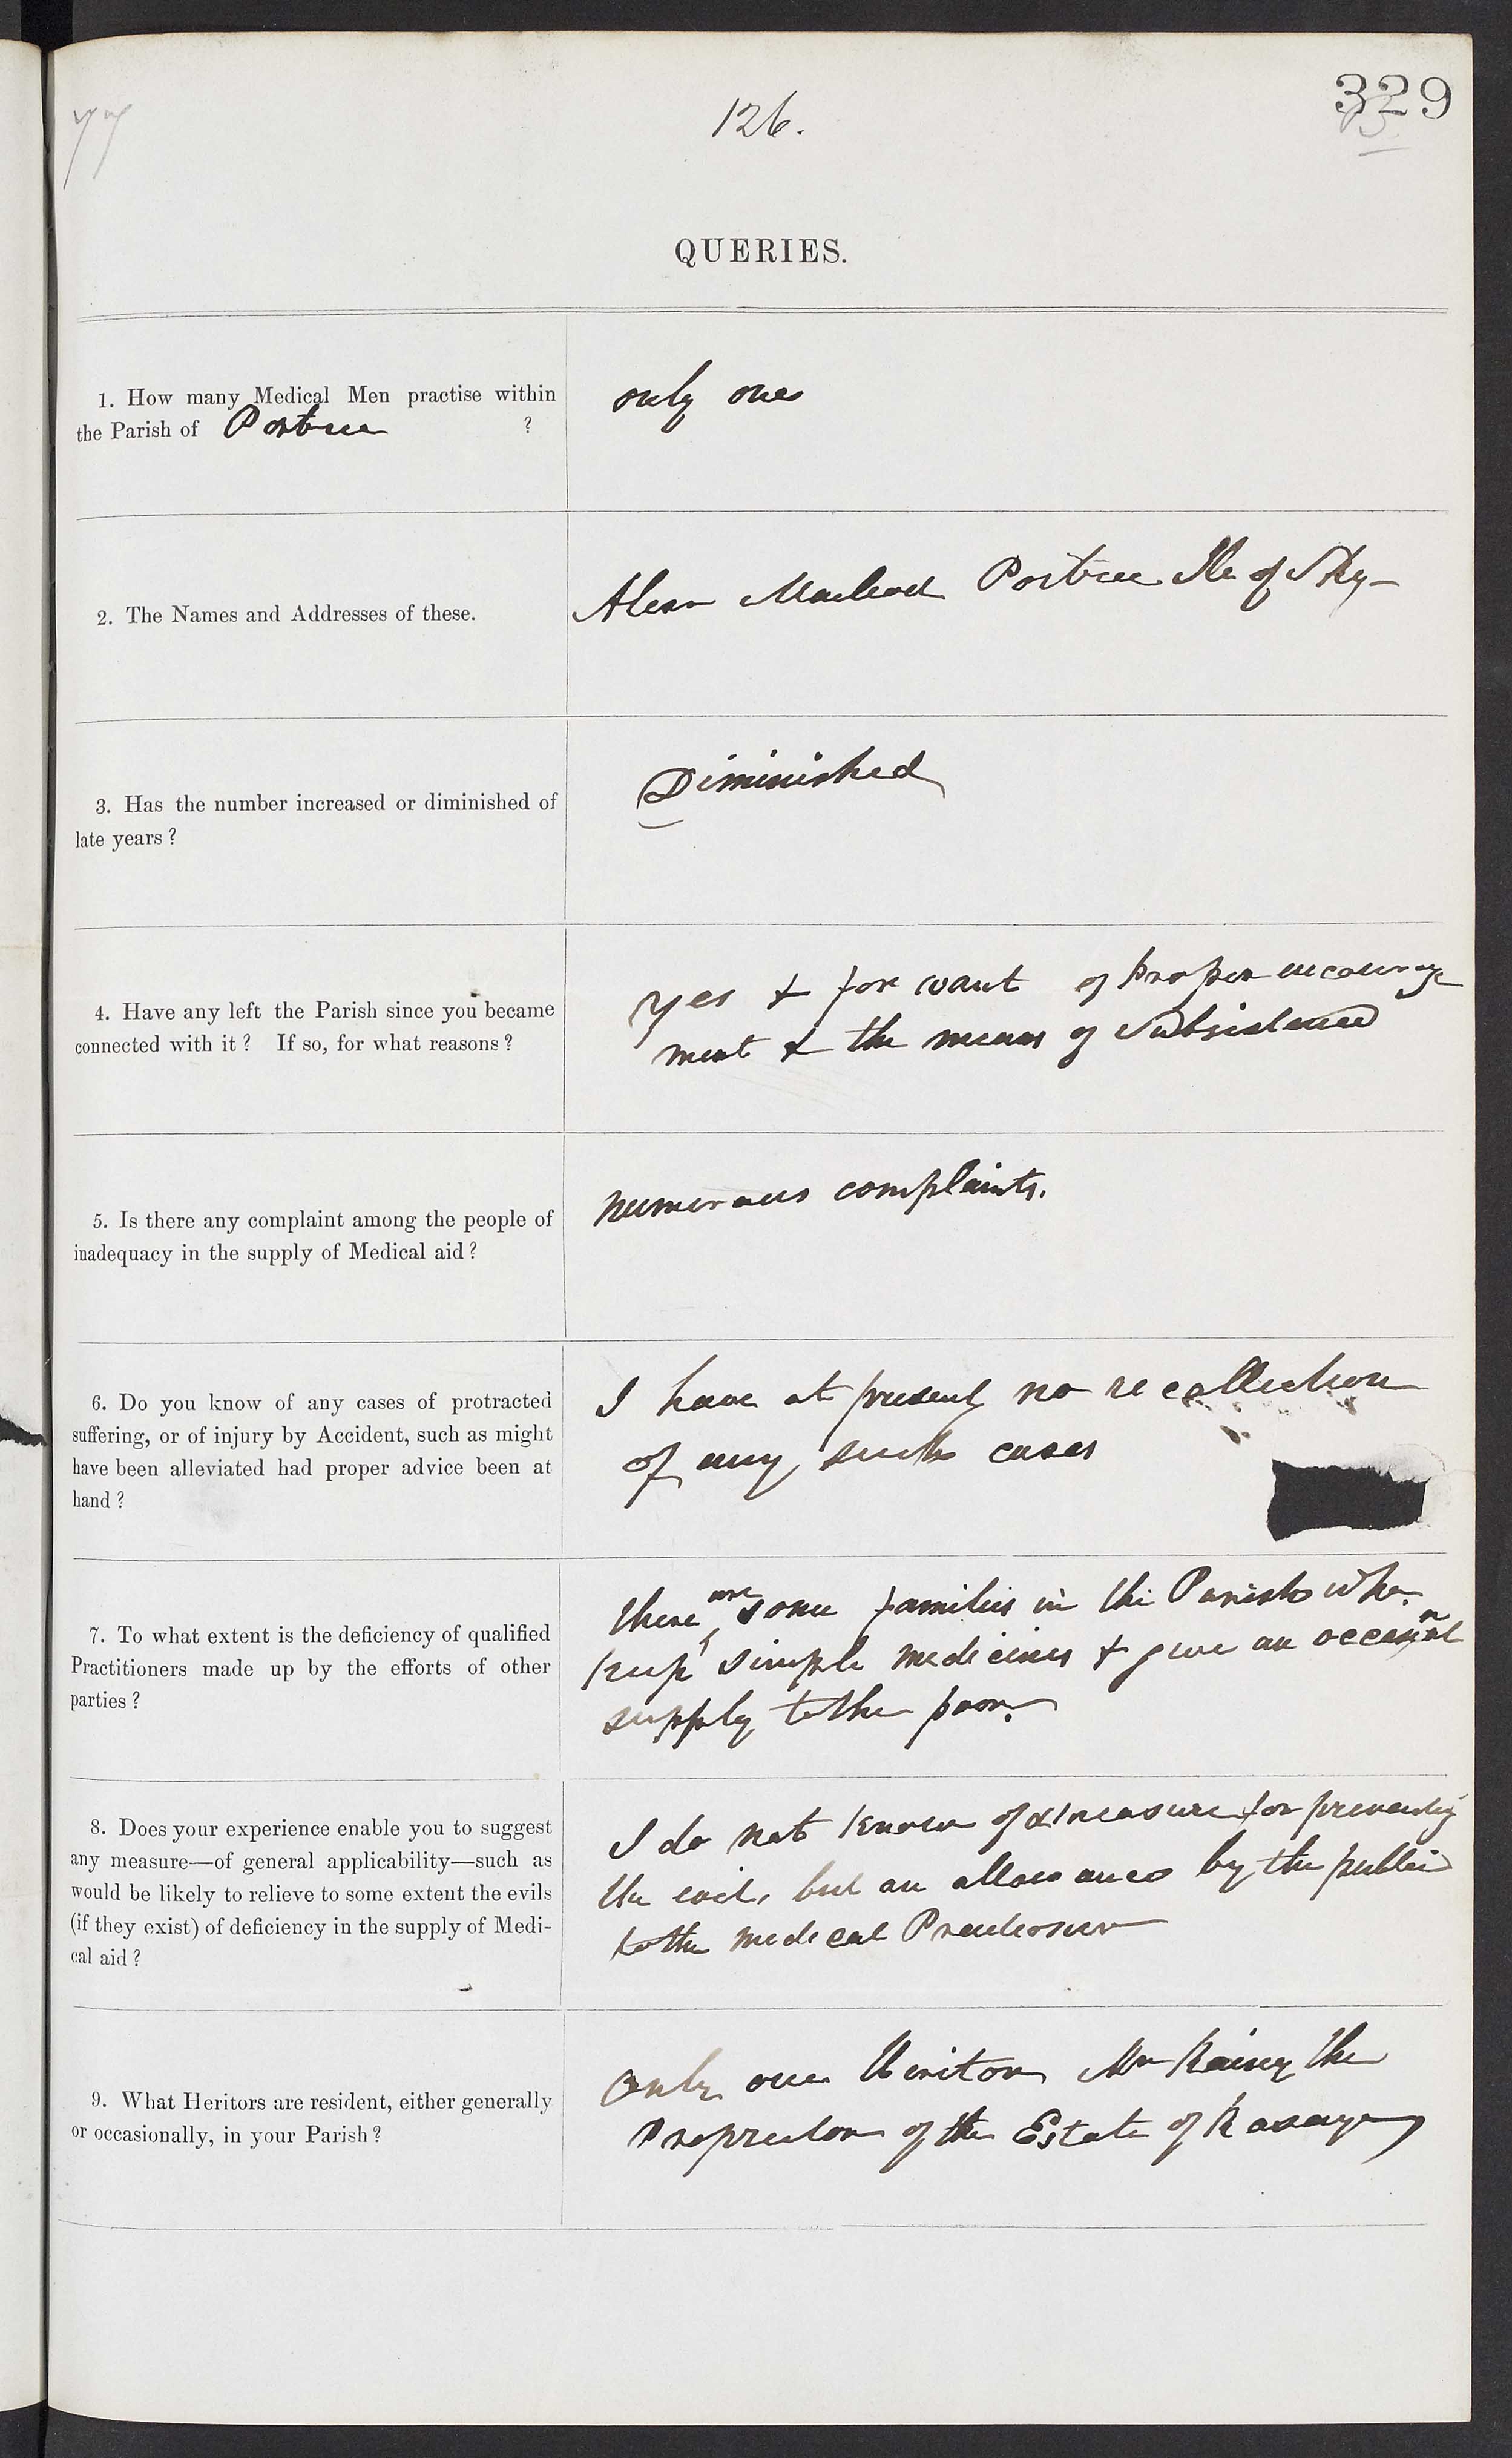 126.
329
QUERIES.
1. How many Medical Men practise within
the Parish of Portree ?
only one
2. The Names and Addresses of these.
Alexr Macleod Portree Ile of Sky
3. Has the number increased or diminished of
late years ?
Diminished
4. Have any left the Parish since you became
connected with it ? If so, for what reasons ?
yes & for want of proper encourage
ment & the means of Subsistence
5. Is there any complaint among the people of
inadequacy in the supply of Medical aid ?
numerous complaints.
6. Do you know of any cases of protracted
suffering, or of injury by Accident, such as might
have been alleviated had proper advice been at
hand ?
I have at present no recollection
of any such cases
7. To what extent is the deficiency of qualified
Practitioners made up by the efforts of other
parties ?
there are some families in the Parish who
keep simple medicines & give an occasional
supply to the poor.
8. Does your experience enable you to suggest
any measure—of general applicability—such as
would be likely to relieve to some extent the evils
(if they exist) of deficiency in the supply of Medi-
cal aid ?
I do not know of a measure for preventing
the evil, but an allowance by the public
to the medical
9. What Heritors are resident, either generally
or occasionally, in your Parish ?
Only one Heritor Mr Rainy the
Proprietor of the Estate of Rasay